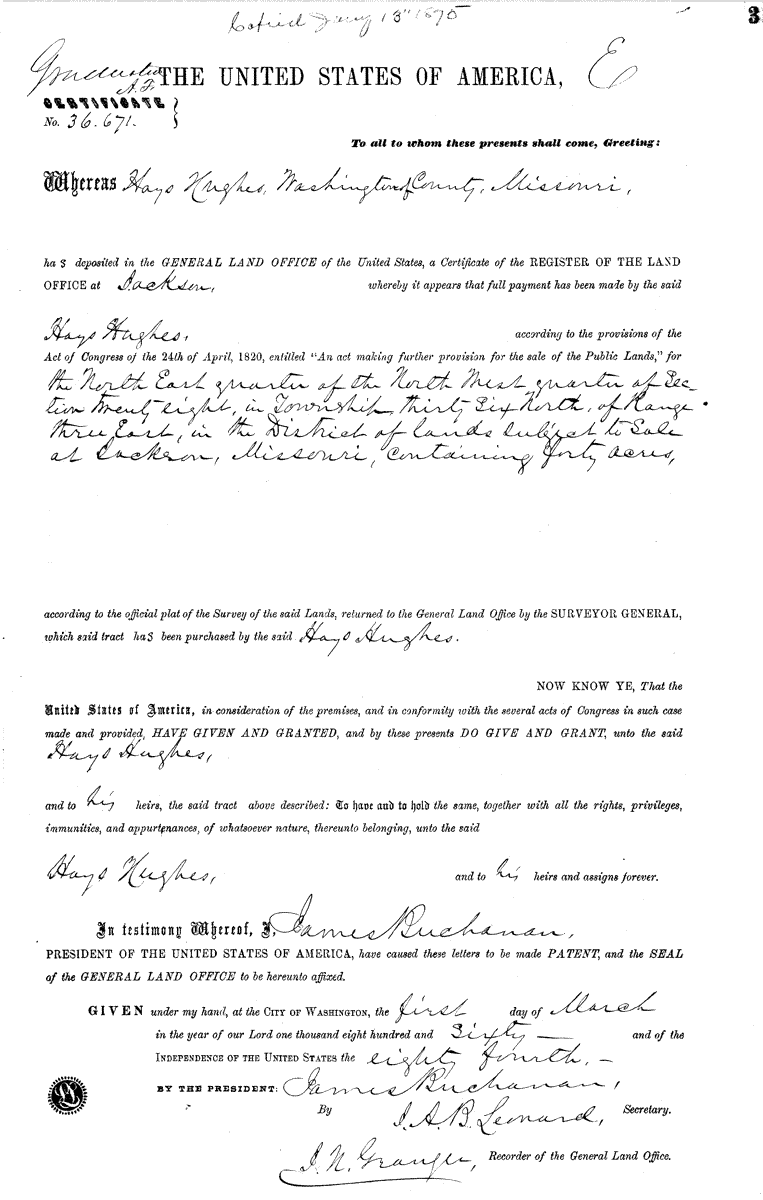 Copied Jany 13" 1875
3
Graduated THE UNITED STATES OF AMERICA, E
CERTIFICATE
No. 36.671.
To all to whom these presents shall come, Greeting:
Whereas Hays Hughes, Washington of County, Missouri,
has deposited in the GENERAL LAND OFFICE of the United States, a Certificate of the REGISTER OF THE LAND
OFFICE at Jackson, whereby it appears that full payment has been made by the said
Hays Hughes, according to the provisions of the
Act of Congress of the 24th of April, 1820, entitled "An act making further provision for the sale of the Public Lands," for
the North East quarter of the North West quarter of Sec-
tion twenty eight, in Township thirty Six North, of Range
three East, in the District of lands subject to Sale
at Jackson, Missouri, containing forty acres,
according to the official plat of the Survey of the said Lands, returned to the General Land Office by the SURVEYOR GENERAL,
which said tract has been purchased by the said Hays Hughes.
NOW KNOW YE, That the
United States of America, in consideration of the premises, and in conformity with the several acts of Congress in such case
made and provided, HAVE GIVEN AND GRANTED, and by these presents DO GIVE AND GRANT, unto the said
Hays Hughes,
and to his heirs, the said tract above described: To have and to hold the same, together with all the rights, privileges,
immunities, and appurtenances, of whatsoever nature, thereunto belonging, unto the said
Hays Hughes, and to his heirs and assigns forever.
In testimony Whereof, I, James Buchanan,
PRESIDENT OF THE UNITED STATES OF AMERICA, have caused these letters to be made PATENT, and the SEAL
of the GENERAL LAND OFFICE to be hereunto affixed.
GIVEN under my hand, at the CITY OF WASHINGTON, the first day of March
in the year of our Lord one thousand eight hundred and Sixty — and of the
INDEPENDENCE OF THE UNITED STATES the eighty fourth, —
BY THE PRESIDENT: James Buchanan,
By J. A. B. Leonard, Secretary.
J. N. Granger, Recorder of the General Land Office.